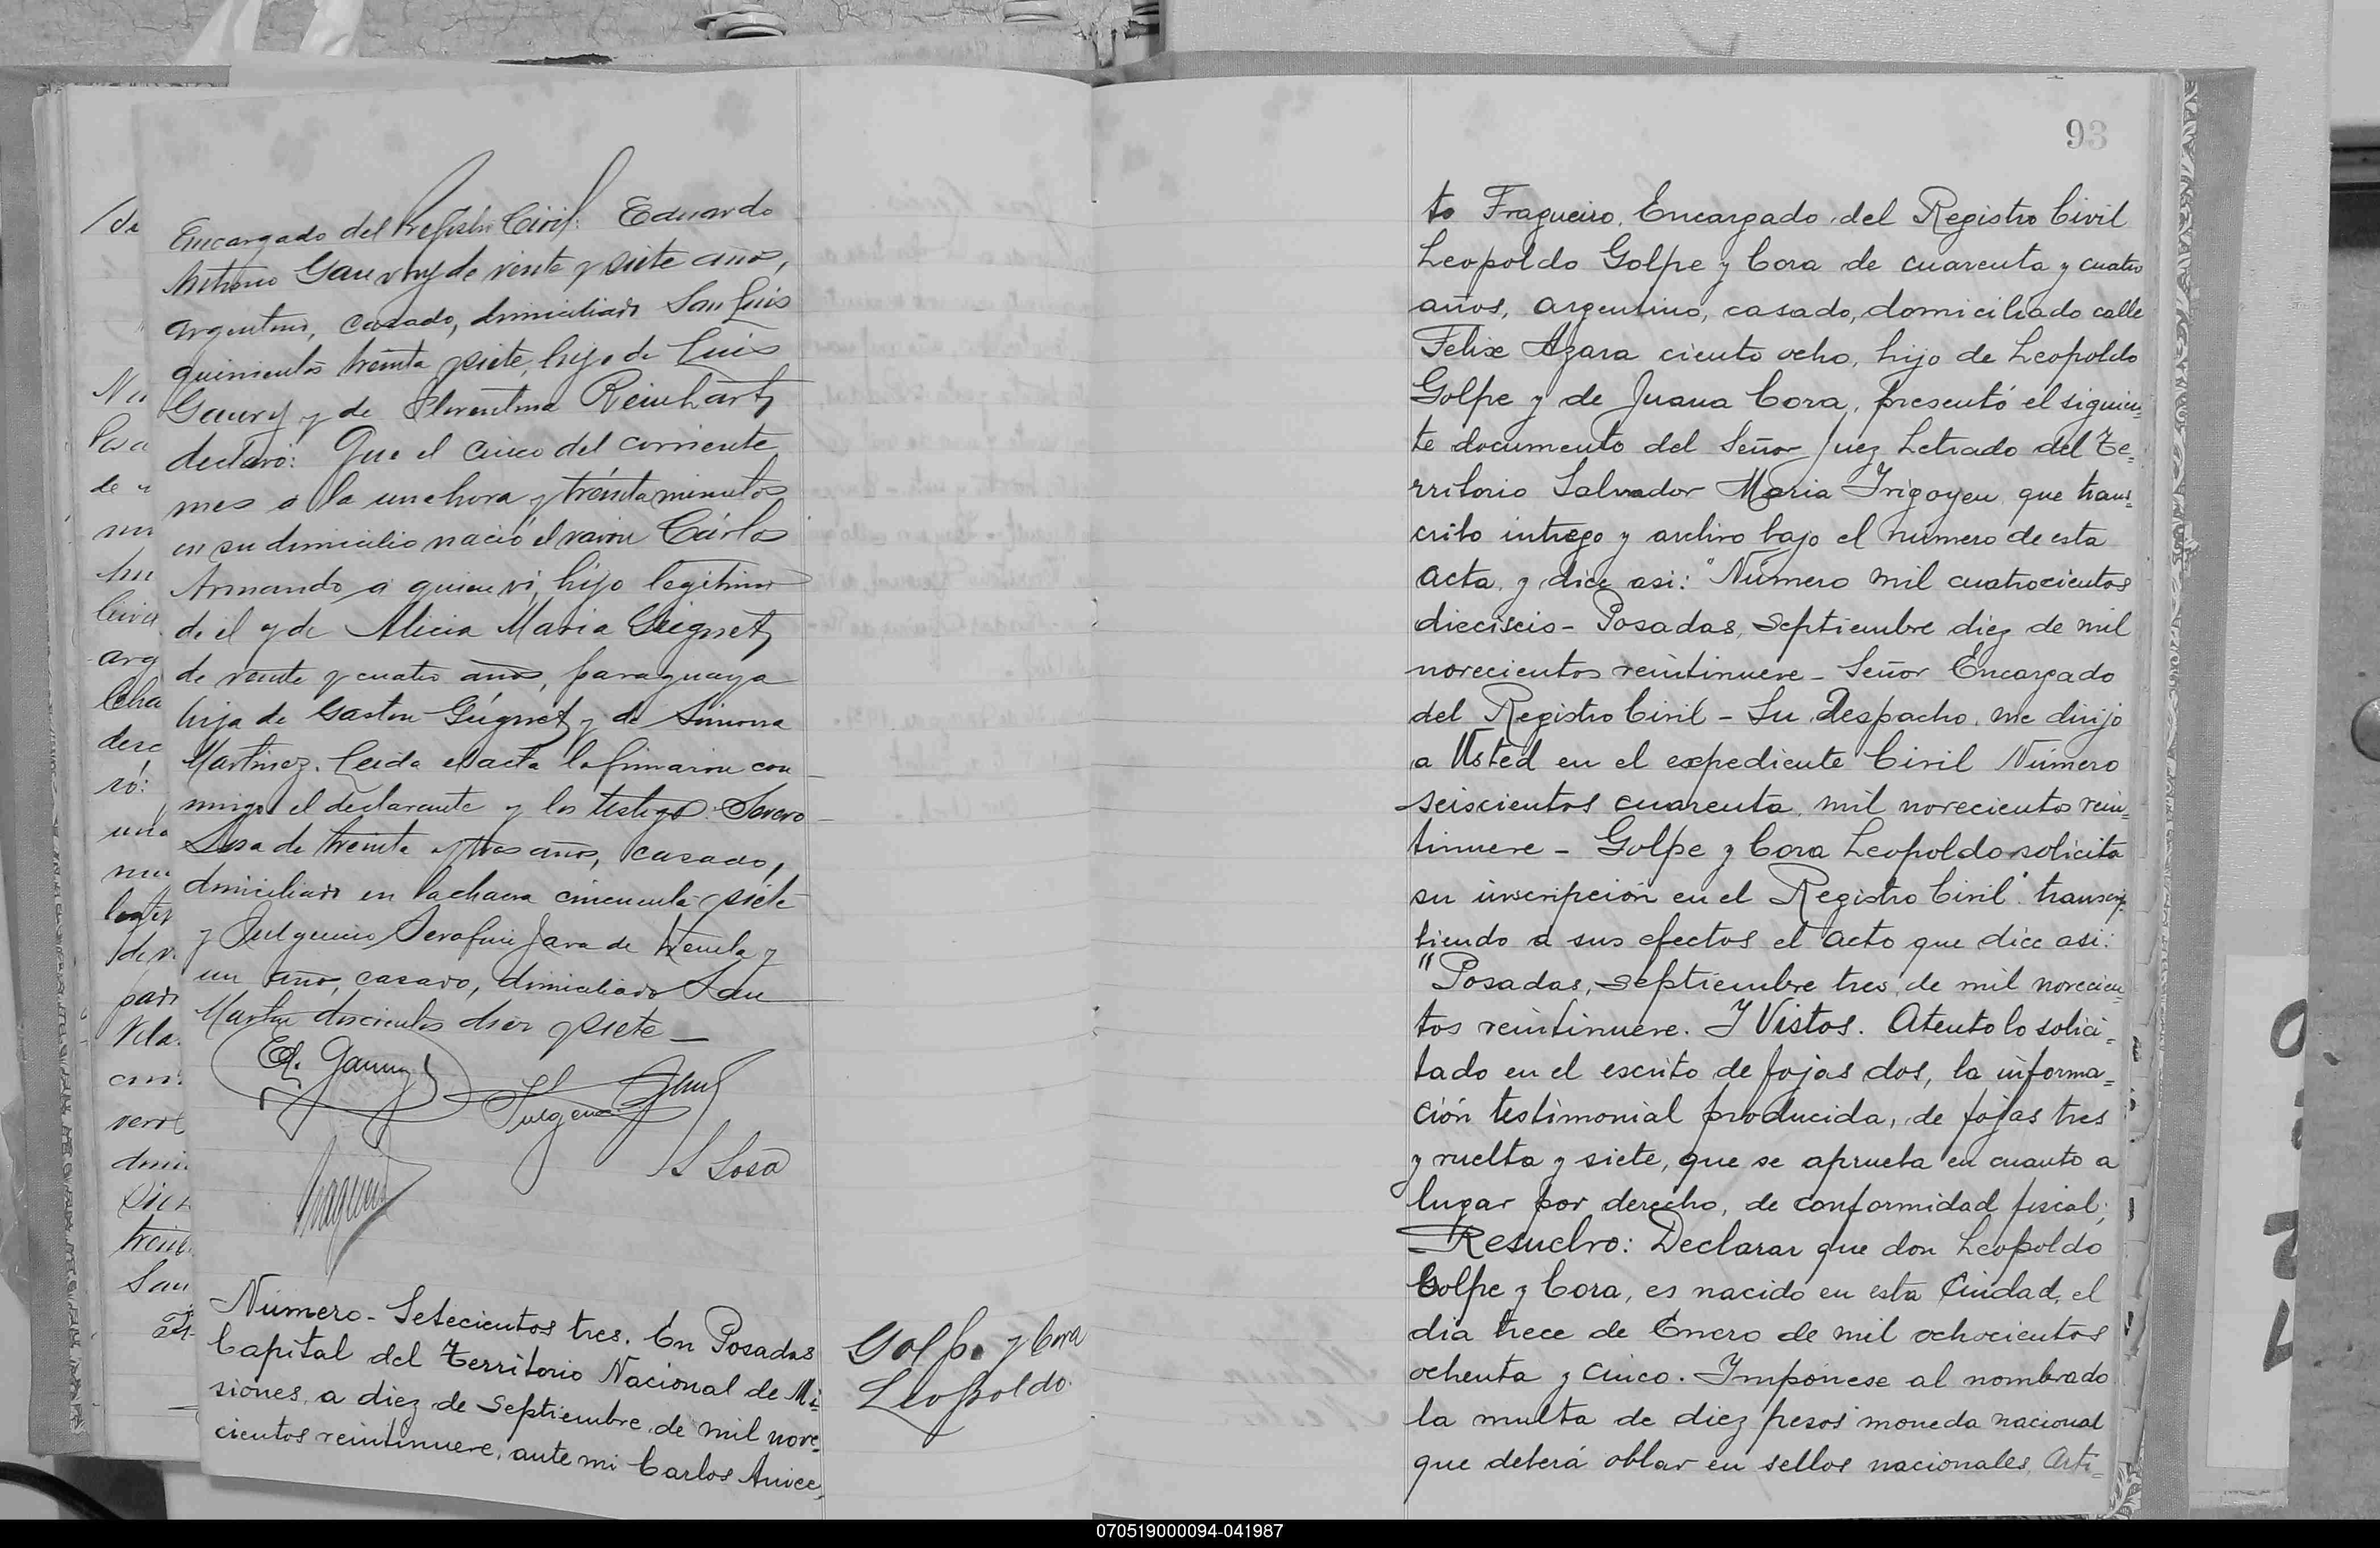 Encargado del Registro Civil: Eduardo
Antonio Gauvry de veinte y siete años,
argentino, casado, domiciliado San Luis
quinientos treinta y siete, hijo de Luis
Gauvry y de Florentina Reinhart,
declaró: Que el cinco del corriente
mes a la una hora y treinta minutos
en su domicilio nació el varon Cárlos
Armando a quien vi, hijo legitimo
de el y de Alicia Maria
de veinte y cuatro años, paraguaya
hija de Gaston y de Simona
Martinez. Leida el acta la firmaron con
migo el declarante y los testigos: Severo
Sosa de treinta y tres años, casado,
domiciliado en la chacra cincuenta y siete
y Fulgencio Serafin Jara de treinta y
un años, casado, domiciliado San
Martin doscientos diez y siete —
S Sosa
Número - Setecientos tres. En Posadas
Capital del Territorio Nacional de Mi=
siones, a diez de Septiembre de mil nove=
cientos veintinueve, ante mi Carlos Anice=
Golpe y Cora
Leopoldo.
93
to Fragueiro, Encargado del Registro Civil
Leopoldo Golpe y Cora de cuarenta y cuatro
años, argentino, casado, domiciliado calle
Felix Azara ciento ocho, hijo de Leopoldo
Golpe y de Juana Cora, presentó el siguien=
te documento del Señor Juez Letrado del Te=
rritorio Salvador Maria Irigoyen que trans=
crito integro y archivo bajo el número de esta
acta y dice asi: "Número mil cuatrocientos
dieciseis - Posadas, Septiembre diez de mil
novecientos veintinueve - Señor Encargado
del Registro Civil - Su Despacho. me dirijo
a Usted en el expediente Civil Número
seiscientos cuarenta, mil novecientos vein=
tinueve - Golpe y Cora Leopoldo solicita
su inscripción en el Registro Civil" transcri=
biendo a sus efectos el acto que dice asi:
"Posadas, Septiembre tres, de mil novecien=
tos veintinueve. Y Vistos. Atento lo solici=
tado en el escrito de fojas dos, la informa=
ción testimonial producida, de fojas tres
y vuelta y siete, que se aprueba en cuanto a
lugar por derecho, de conformidad fiscal;
Resuelvo: Declarar que don Leopoldo
Golpe y Cora, es nacido en esta Ciudad, el
dia trece de Enero de mil ochocientos
ochenta y cinco. Imponese al nombrado
la multa de diez pesos moneda nacional
que deberá oblar en sellos nacionales, Arti=
070519000094-041987